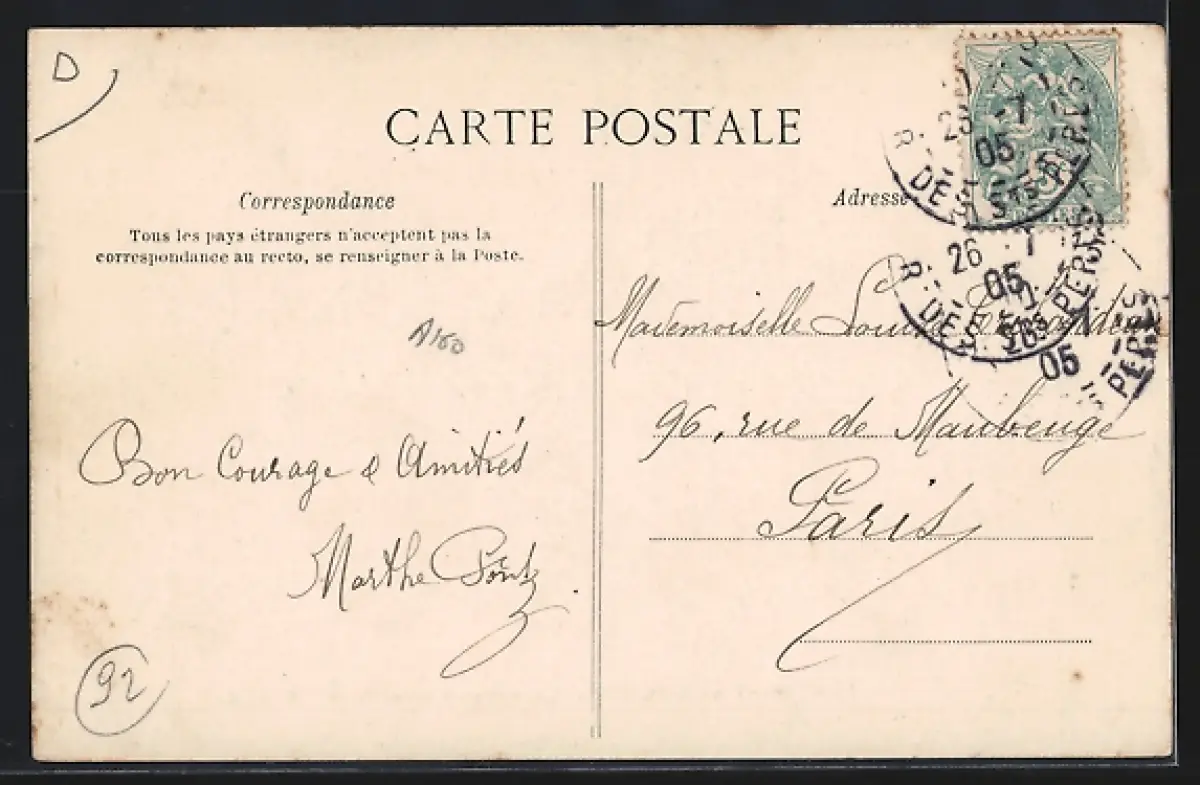 D
CARTE POSTALE
Correspondance
Tous les pays étrangers n'acceptent pas la
correspondance au recto, se renseigner à la Poste.
Adresse
R. DES STS PÈRES
05
26 -7
05
R. DES STS PÈRES
05
PÈRES
Mademoiselle
96, rue de Maubeuge
Paris
Bon Courage & Amitiés
Marthe
92